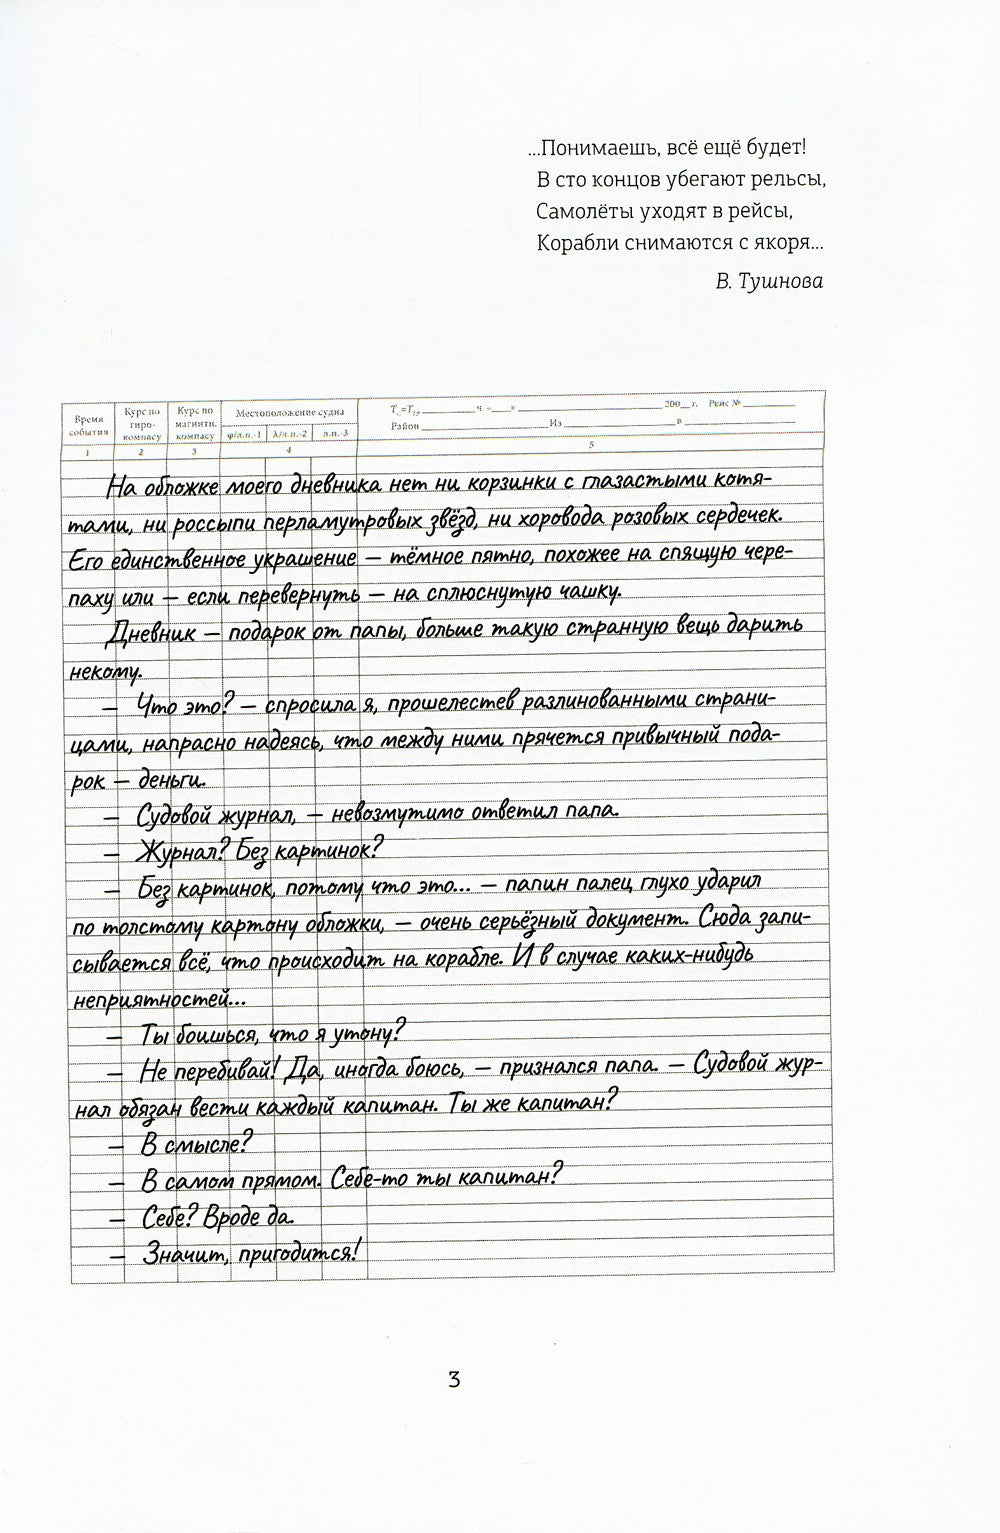 ...Понимаешь, всё ещё будет!
В сто концов убегают рельсы,
Самолёты уходят в рейсы,
Корабли снимаются с якоря...
В. Тушнова
Время события
Курс по гиро-компасу
Курс по магнитн. компасу
Местоположение судна
φ/л.п.-1 λ/л.п.-2 л.п.-3
ч. «___» 200__г. Рейс №
Район Из в
1 2 3 4 5
На обложке моего дневника нет ни корзинки с глазастыми котя-
тами, ни россыпи перламутровых звёзд, ни хоровода розовых сердечек.
Его единственное украшение — тёмное пятно, похожее на спящую чере-
паху или — если перевернуть — на сплюснутую чашку.
Дневник — подарок от папы, больше такую странную вещь дарить
некому.
— Что это? — спросила я, прошелестев разлинованными страни-
цами, напрасно надеясь, что между ними прячется привычный пода-
рок — деньги.
— Судовой журнал, — невозмутимо ответил папа.
— Журнал? Без картинок?
— Без картинок, потому что это... — папин палец глухо ударил
по толстому картону обложки, — очень серьёзный документ. Сюда запи-
сывается всё, что происходит на корабле. И в случае каких-нибудь
неприятностей...
— Ты боишься, что я утону?
— Не перебивай! Да, иногда боюсь, — признался папа. — Судовой жур-
нал обязан вести каждый капитан. Ты же капитан?
— В смысле?
— В самом прямом. Себе-то ты капитан?
— Себе? Вроде да.
— Значит, пригодится!
3